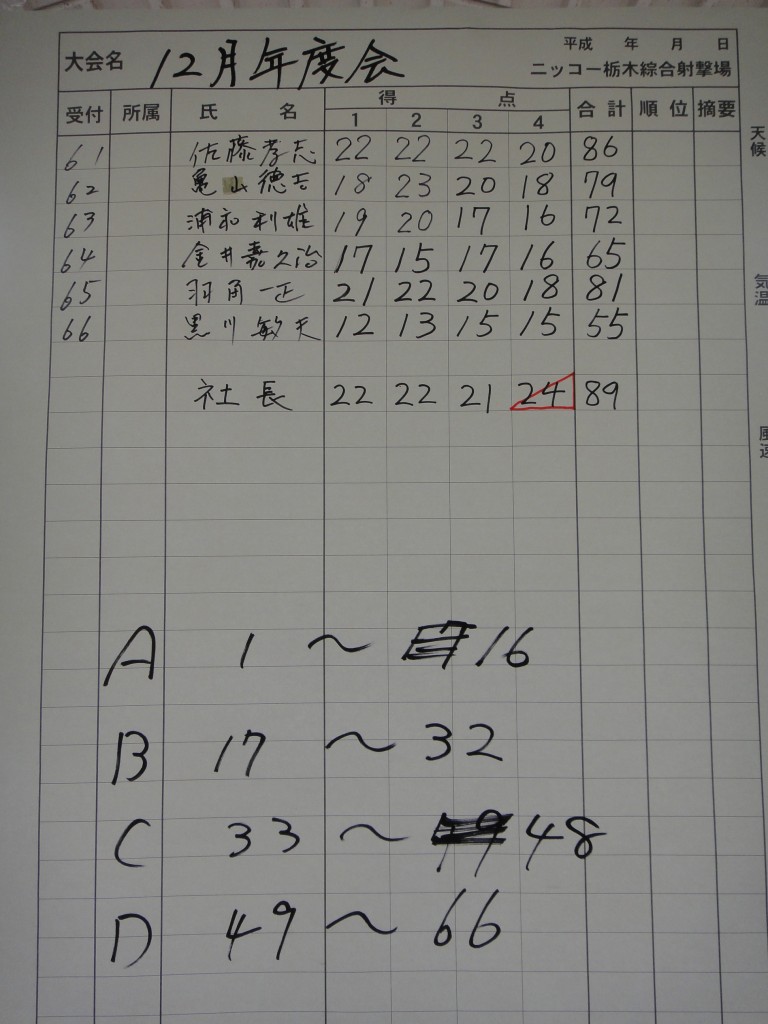 平成 年 月 日
大会名 12月年度会 ニッコー栃木綜合射撃場
受付 所属 氏 名 得 点 合計 順位 摘要
1 2 3 4
天候
61 佐藤孝志 22 22 22 20 86
62 亀山徳吉 18 23 20 18 79
63 浦和利雄 19 20 17 16 72
64 金井嘉久治 17 15 17 16 65
気温
65 羽角一正 21 22 20 18 81
66 黒川敏夫 12 13 15 15 55
社長 22 22 21 24 89
風速
A 1 〜 16
B 17 〜 32
C 33 〜 48
D 49 〜 66